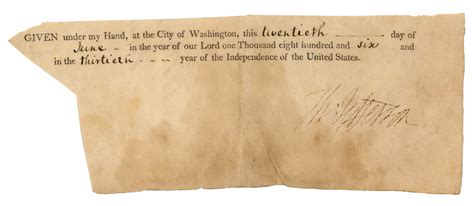 GIVEN under my Hand, at the City of Washington, this twentieth day of
June in the year of our Lord one Thousand eight hundred and six and
in the thirtieth year of the Independence of the United States.
Th: Jefferson